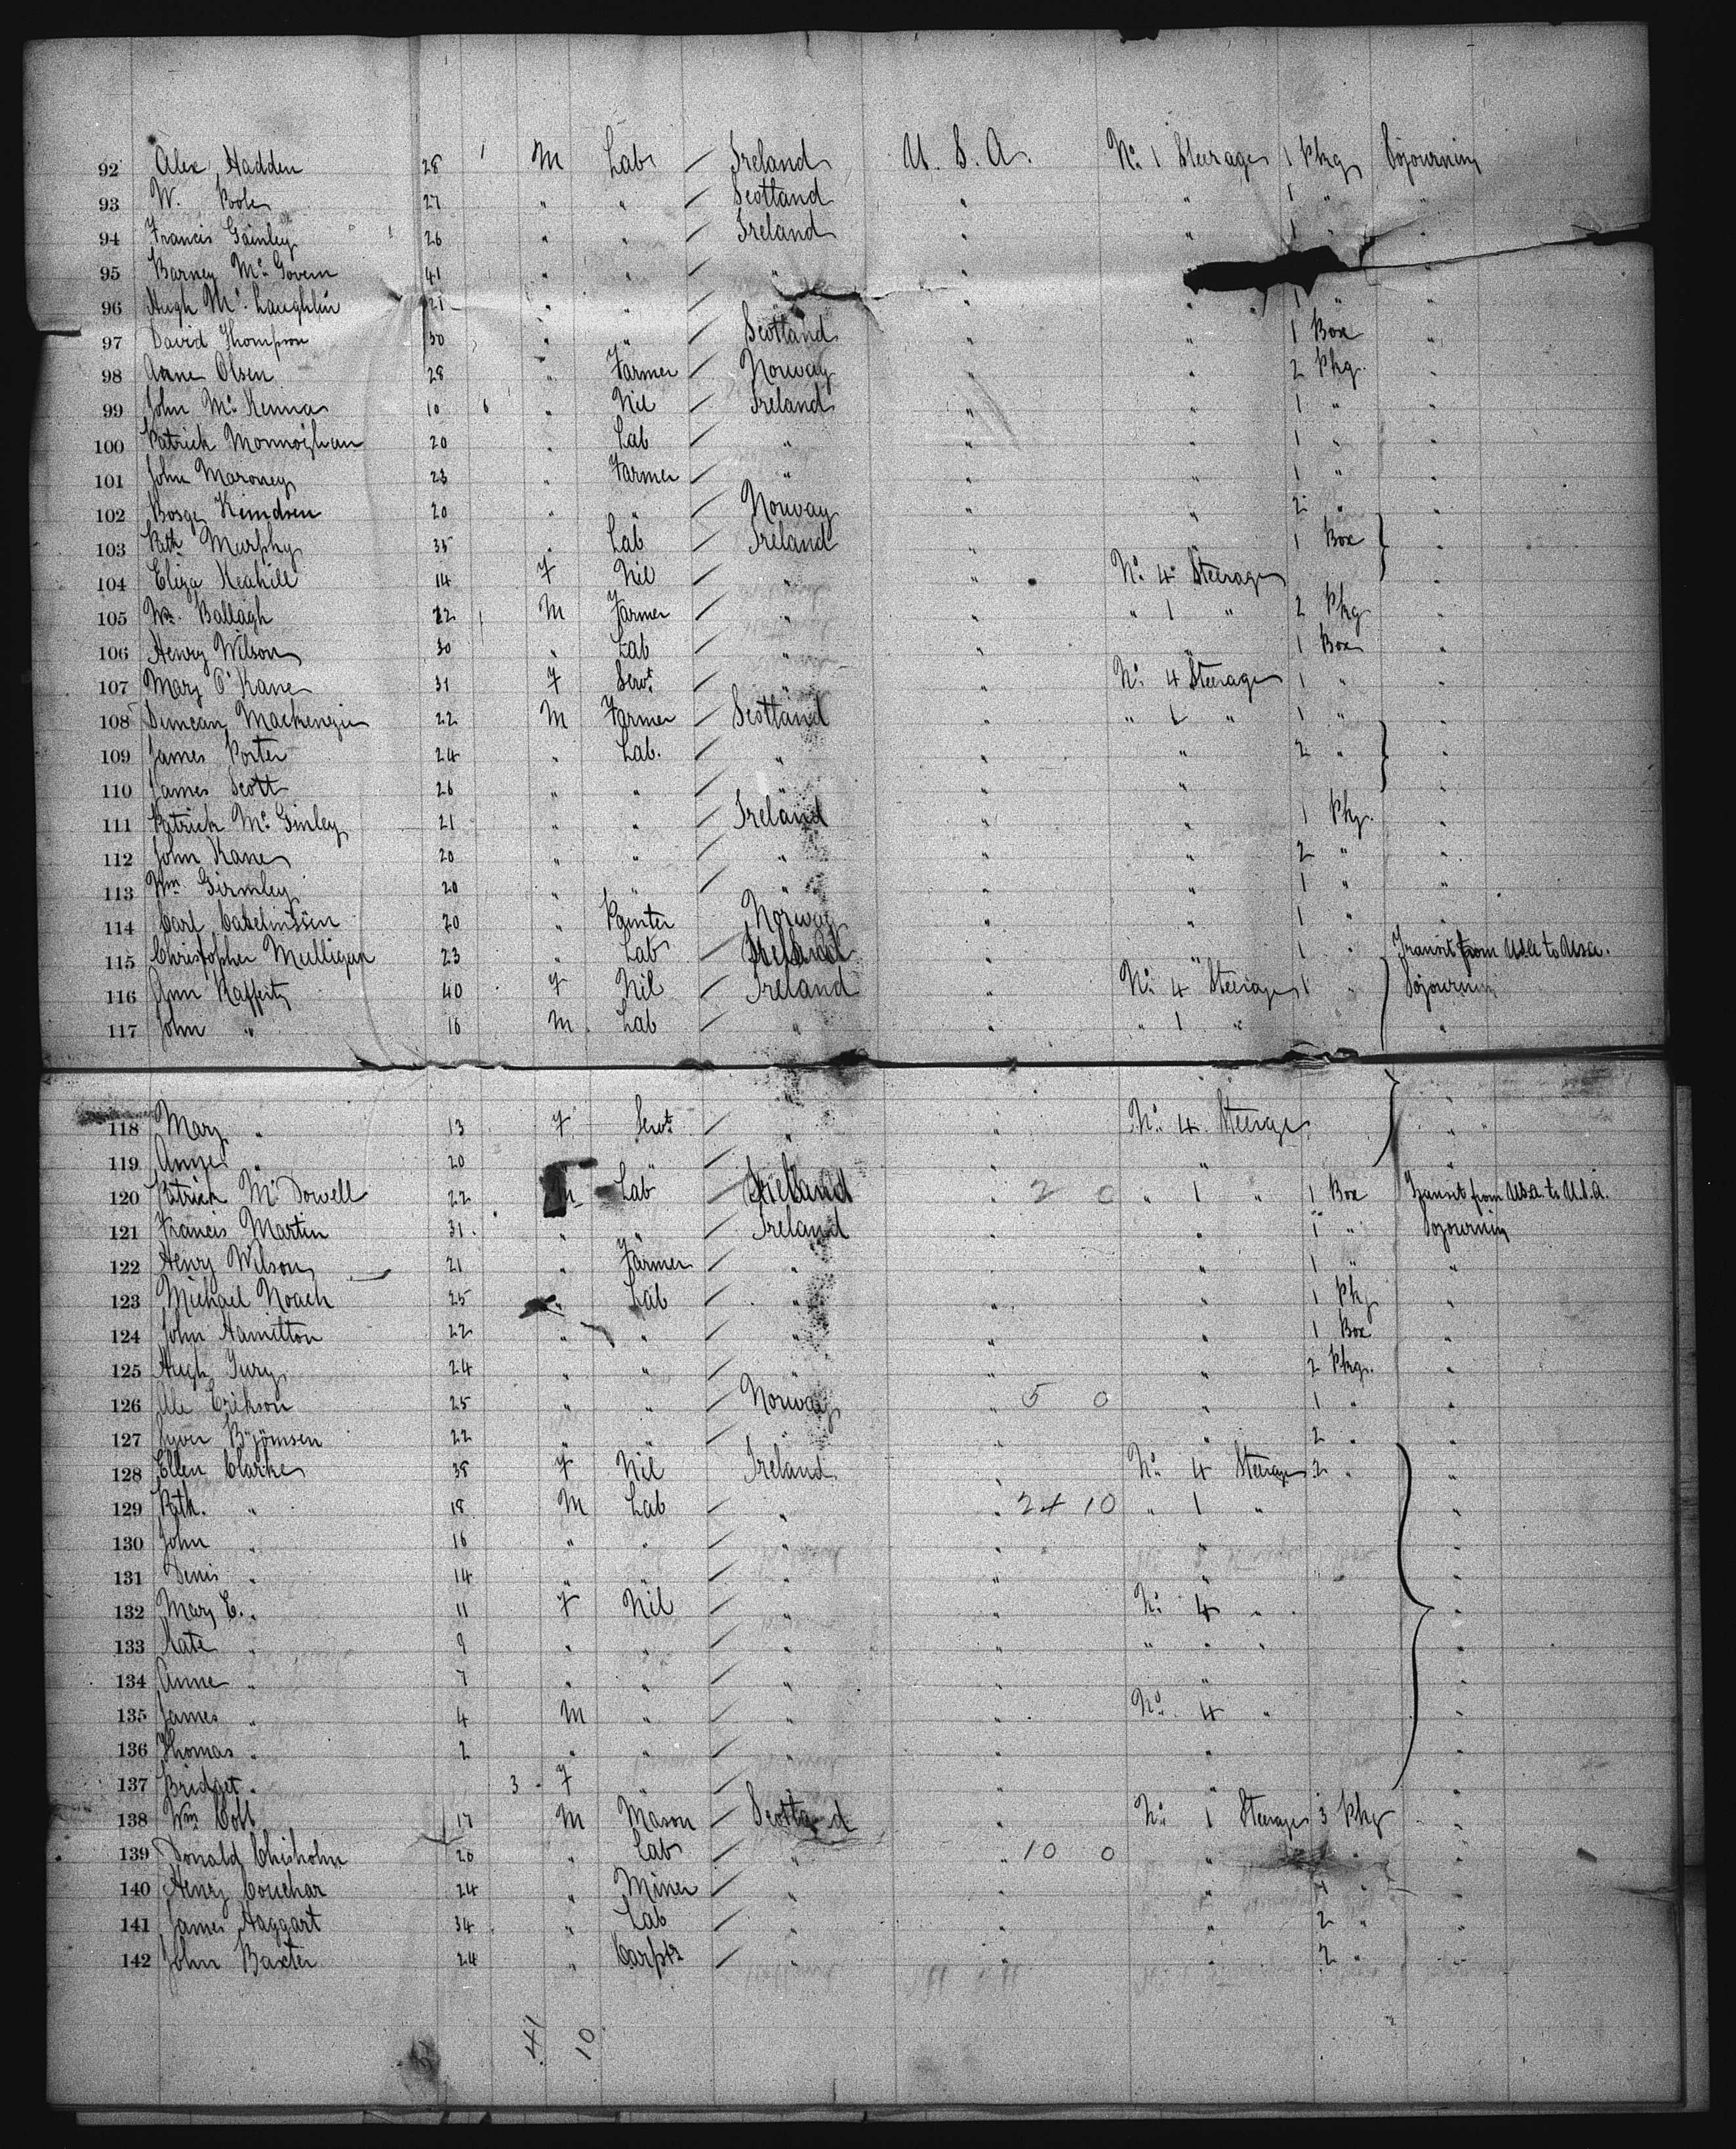 92 Alex Hadden 28 M Lab Ireland U. S. A. No. 1 Steerage 1 Pkg Sojourning
93 W. Poole 27 " " Scotland " " 1 " "
94 Francis Gainley 26 " " Ireland " " 1 " "
95 Barney Mc Govern 41 " " " " "
96 Hugh Mc Laughlin 21 " " " " " 1 " "
97 David Thompson 30 " " Scotland " " 1 Box "
98 Anne Olsen 28 " Farmer Norway " " 2 Pkg. "
99 John Mc Kenna 10 " Nil Ireland " " 1 " "
100 Patrick Monnoighan 20 " Lab " " " 1 " "
101 John Maroney 23 " Farmer " " " 1 " "
102 Kimdsen 20 " " Norway " " 2 " "
103 Patk Murphy 35 " Lab Ireland " " 1 Box "
104 Eliza Keahill 14 F Nil " " No. 4 Steerage "
105 Wm. Ballagh 22 M Farmer " " " 1 " 2 Pkg "
106 Henry Wilson 30 " Lab " " " 1 Box "
107 Mary O'Kane 31 F Servt " " No. 4 Steerage 1 " "
108 Duncan Mackenzie 22 M Farmer Scotland " " 1 " 1 " "
109 James Porter 24 " Lab. " " " 2 " "
110 James Scott 26 " " " " " "
111 Patrick Mc Ginley 21 " " Ireland " " 1 Pkg. "
112 John Kane 20 " " " " " 2 " "
113 Wm Girmley 20 " " " " " 1 " "
114 Carl 20 " Painter Norway " " 1 " "
115 Christopher Mulligan 23 " Lab Ireland " " 1 " Transit from USA to USA.
116 Ann Rafferty 40 F Nil Ireland " No. 4 Steerage 1 " Sojourning
117 John " 16 M Lab " " " 1 " "
118 Mary " 13 F Servt " " No. 4 Steerage "
119 Annie " 20 " " " " " "
120 Patrick Mc Dowell 22 M Lab Ireland " 2 0 " 1 " 1 Box Transit from USA to U.S.A.
121 Francis Martin 31 " " Ireland " 1 " Sojourning
122 Henry Wilson 21 " Farmer " " 1 " "
123 Michael Roach 25 " Lab " " " 1 Pkg "
124 John Hamilton 22 " " " " " 1 Box "
125 Hugh Tury 24 " " " " " 2 Pkgs. "
126 Ole Erikson 25 " " Norway " 5 0 " 1 " "
127 Byjömsen 22 " " " " " 2 " "
128 Ellen Clarke 38 F Nil Ireland " No. 4 Steerage 2 " "
129 Patk. " 18 M Lab " " 24 10 " 1 " "
130 John " 16 " " " " " "
131 Denis " 14 " " " " " "
132 Mary E. " 11 F Nil " " No. 4 " "
133 Kate " 9 " " " " " " " "
134 Anne " 7 " " " " " "
135 James " 4 M " " " No. 4 " "
136 Thomas " 2 " " " " " "
137 Bridget " 3 F " " " " "
138 Wm Cobb 17 M Mason Scotland " No. 1 Steerage 3 Pkg "
139 Donald Chisholm 26 " Lab " " 10 0 " " "
140 Henry Couchar 24 " Miner " " " " "
141 James Haggart 34 " Lab " " " 2 " "
142 John Baxter 24 " Carptr " " " 2 " "
41 10